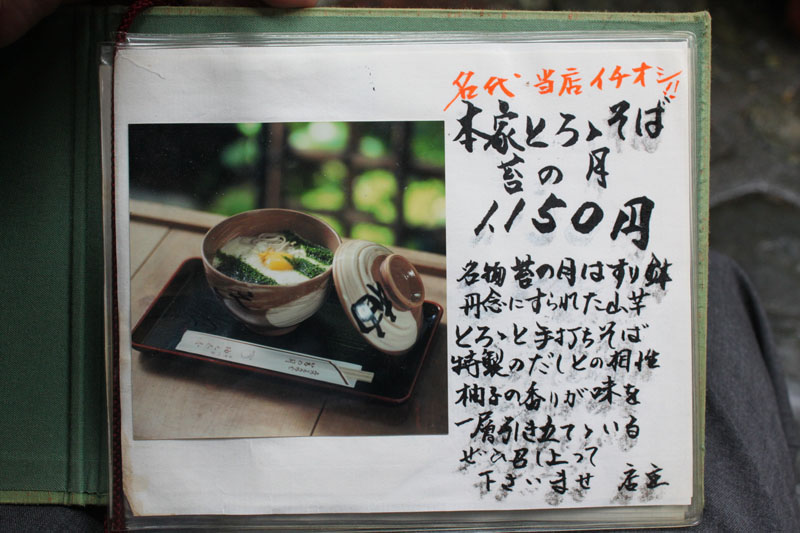 名代 当店イチオシ!!
本家とろゝそば
苔の月
1,150円
名物苔の月はすり鉢
丹念にすられた山芋
とろゝと手打ちそば
特製のだしとの相性
柚子の香りが味を
一層引き立てゝいる
ぜひ召し上って
下さいませ 店主